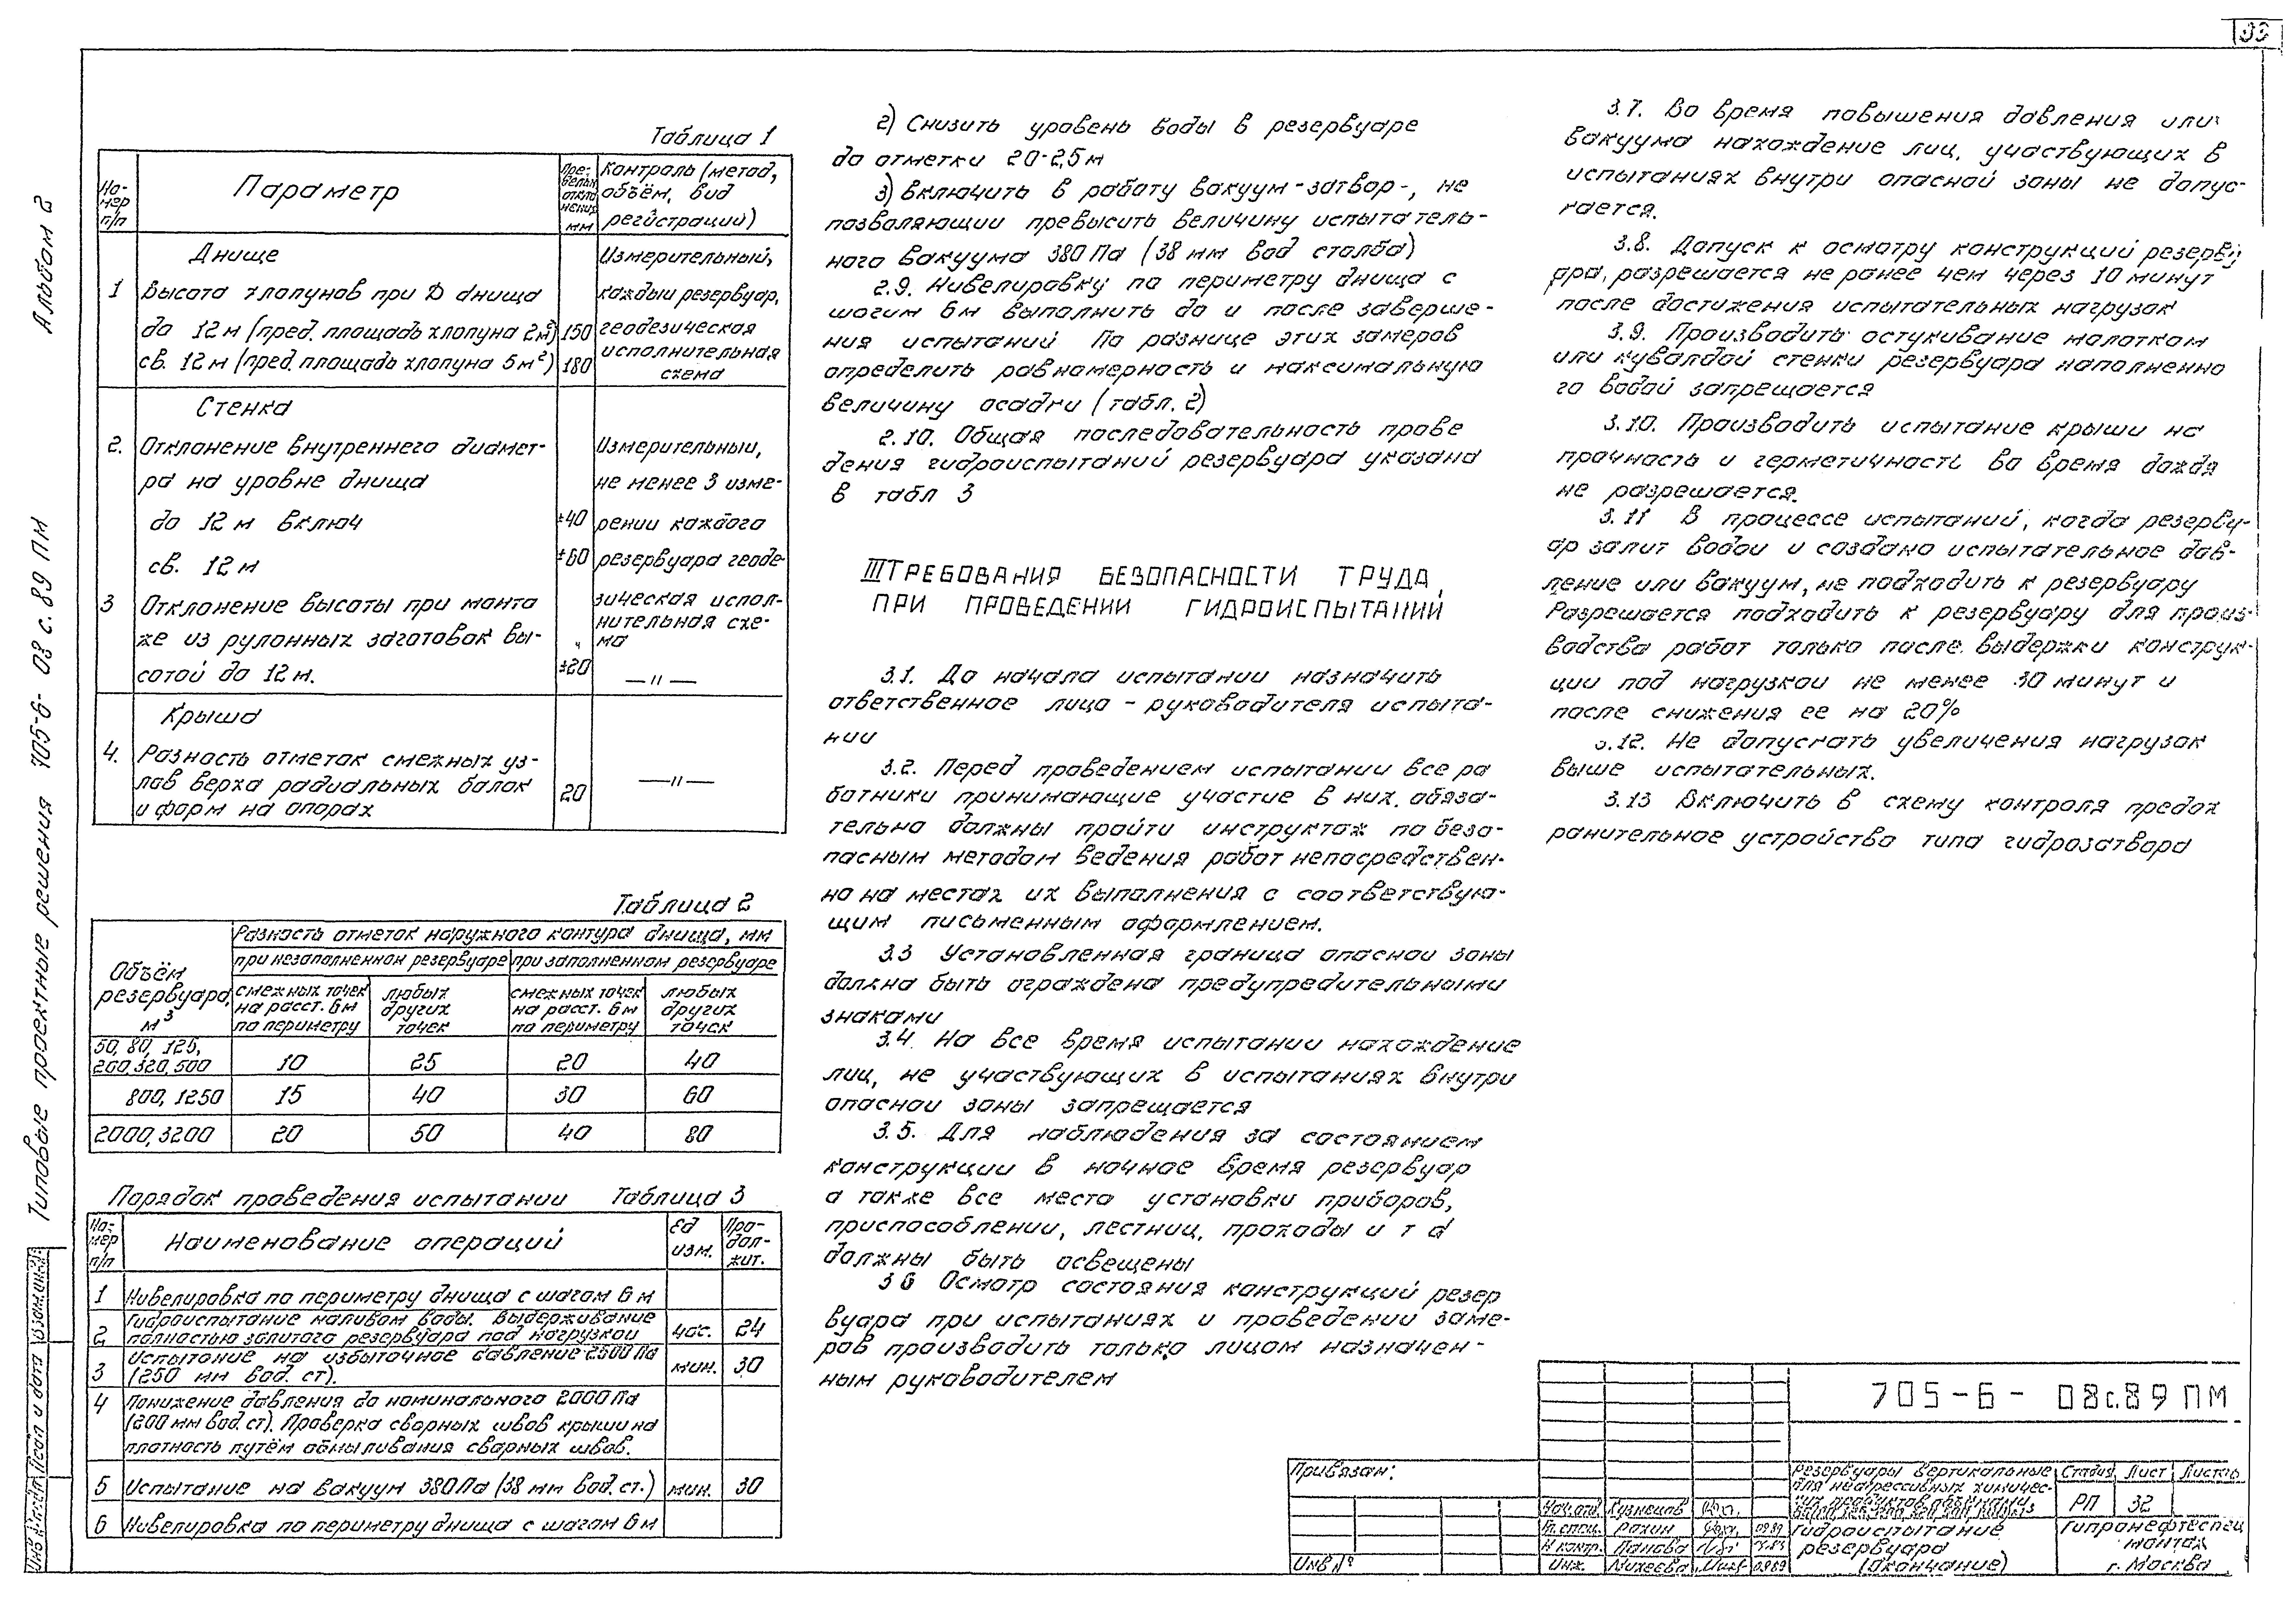 33
Альбом 2
Типовые проектные решения 705-6- 08 с. 89 ПМ
Таблица 1
Но-
мер
п/п
Параметр
Пре-
дельн
откло
нения
мм
Контроль (метод,
объём, вид
регистрации)
Днище
1 Высота хлопунов при D днища
до 12 м (пред. площадь хлопуна 2м²) 150
св. 12 м (пред. площадь хлопуна 5м²) 180
Измерительный,
каждый резервуар,
геодезическая
исполнительная
схема
Стенка
2. Отклонение внутреннего диамет-
ра на уровне днища
до 12 м включ ±40
св. 12 м ±60
Измерительный,
не менее 3 изме-
рений каждого
резервуара геоде-
зическая испол-
нительная схе-
ма
3 Отклонение высоты при монта
же из рулонных заготовок вы-
сотой до 12 м. ±20 —"—
Крыша
4. Разность отметок смежных уз-
лов верха радиальных балок
и ферм на опорах 20 —"—
Таблица 2
Объём
резервуара,
м³
Разность отметок наружного контура днища, мм
при незаполненном резервуаре при заполненном резервуаре
смежных точек
на расст. 6 м
по периметру
любых
других
точек
смежных точек
на расст. 6 м
по периметру
любых
других
точек
50, 80, 125,
200, 320, 500 10 25 20 40
800, 1250 15 40 30 60
2000, 3200 20 50 40 80
Порядок проведения испытании Таблица 3
Но-
мер
п/п
Наименование операций
Ед
изм.
Про-
дол-
жит.
1 Нивелировка по периметру днища с шагом 6 м
2 Гидроиспытание наливом воды. Выдерживание
полностью залитого резервуара под нагрузкой час. 24
3 Испытание на избыточное давление 2500 Па
(250 мм вод. ст). мин. 30
4 Понижение давления до номинального 2000 Па
(200 мм вод. ст). Проверка сварных швов крыши на
плотность путём обмыливания сварных швов.
5 Испытание на вакуум 380 Па (38 мм вод. ст.) мин. 30
6 Нивелировка по периметру днища с шагом 6 м
г) Снизить уровень воды в резервуаре
до отметки 2.0-2,5 м
з) Включить в работу вакуум-затвор-, не
позволяющии превысить величину испытатель-
ного вакуума 380 Па (38 мм вод столба)
2.9. Нивелировку по периметру днища с
шагом 6 м выполнить до и после заверше-
ния испытаний По разнице этих замеров
определить равномерность и максимальную
величину осадки (табл. 2)
2.10. Общая последовательность прове
дения гидроиспытаний резервуара указана
в табл 3
III ТРЕБОВАНИЯ БЕЗОПАСНОСТИ ТРУДА,
ПРИ ПРОВЕДЕНИИ ГИДРОИСПЫТАНИЙ
3.1. До начала испытании назначить
ответственное лицо - руководителя испыта-
нии
3.2. Перед проведением испытании все ра
ботники принимающие участие в них, обяза-
тельно должны пройти инструктаж по безо-
пасным методам ведения работ непосредствен-
но на местах их выполнения с соответствую-
щим письменным оформлением.
3.3 Установленная граница опасной зоны
должна быть ограждена предупредительными
знаками
3.4. На все время испытании нахождение
лиц, не участвующих в испытаниях внутри
опасной зоны запрещается
3.5. Для наблюдения за состоянием
конструкции в ночное время резервуар
а также все места установки приборов,
приспособлении, лестниц, проходы и т д
должны быть освещены
3 6 Осмотр состояния конструкций резер
вуара при испытаниях и проведении заме-
ров производить только лицом назначен-
ным руководителем
3.7. Во время повышения давления или
вакуума нахождение лиц, участвующих в
испытаниях внутри опасной зоны не допус-
кается.
3.8. Допуск к осмотру конструкций резерву
ара, разрешается не ранее чем через 10 минут
после достижения испытательных нагрузок
3.9. Производить остукивание молотком
или кувалдой стенки резервуара наполненно
го водой запрещается
3.10. Производить испытание крыши на
прочность и герметичность во время дождя
не разрешается.
3.11 В процессе испытаний, когда резерву-
ар залит водой и создано испытательное дав-
ление или вакуум, не подходить к резервуару
Разрешается подходить к резервуару для произ-
водства работ только после выдержки конструк-
ции под нагрузкой не менее 30 минут и
после снижения ее на 20%
3.12. Не допускать увеличения нагрузок
выше испытательных.
3.13 Включить в схему контроля предох
ранительное устройство типа гидрозатвора
Привязан:
Инв №
705-6- 08с.89 ПМ
Нач. отд. Кузнецов
Гл. спец. Рахин 09.89
Н контр. Панова
Инж. Михеева 09.89
Резервуары вертикальные
для неагрессивных химичес-
Гидроиспытание
резервуара
(окончание)
Стадия Лист Листов
РП 32
Гипронефтеспец
монтаж
г. Москва
Взам. инв. №
Подп. и дата
Инв № подл.